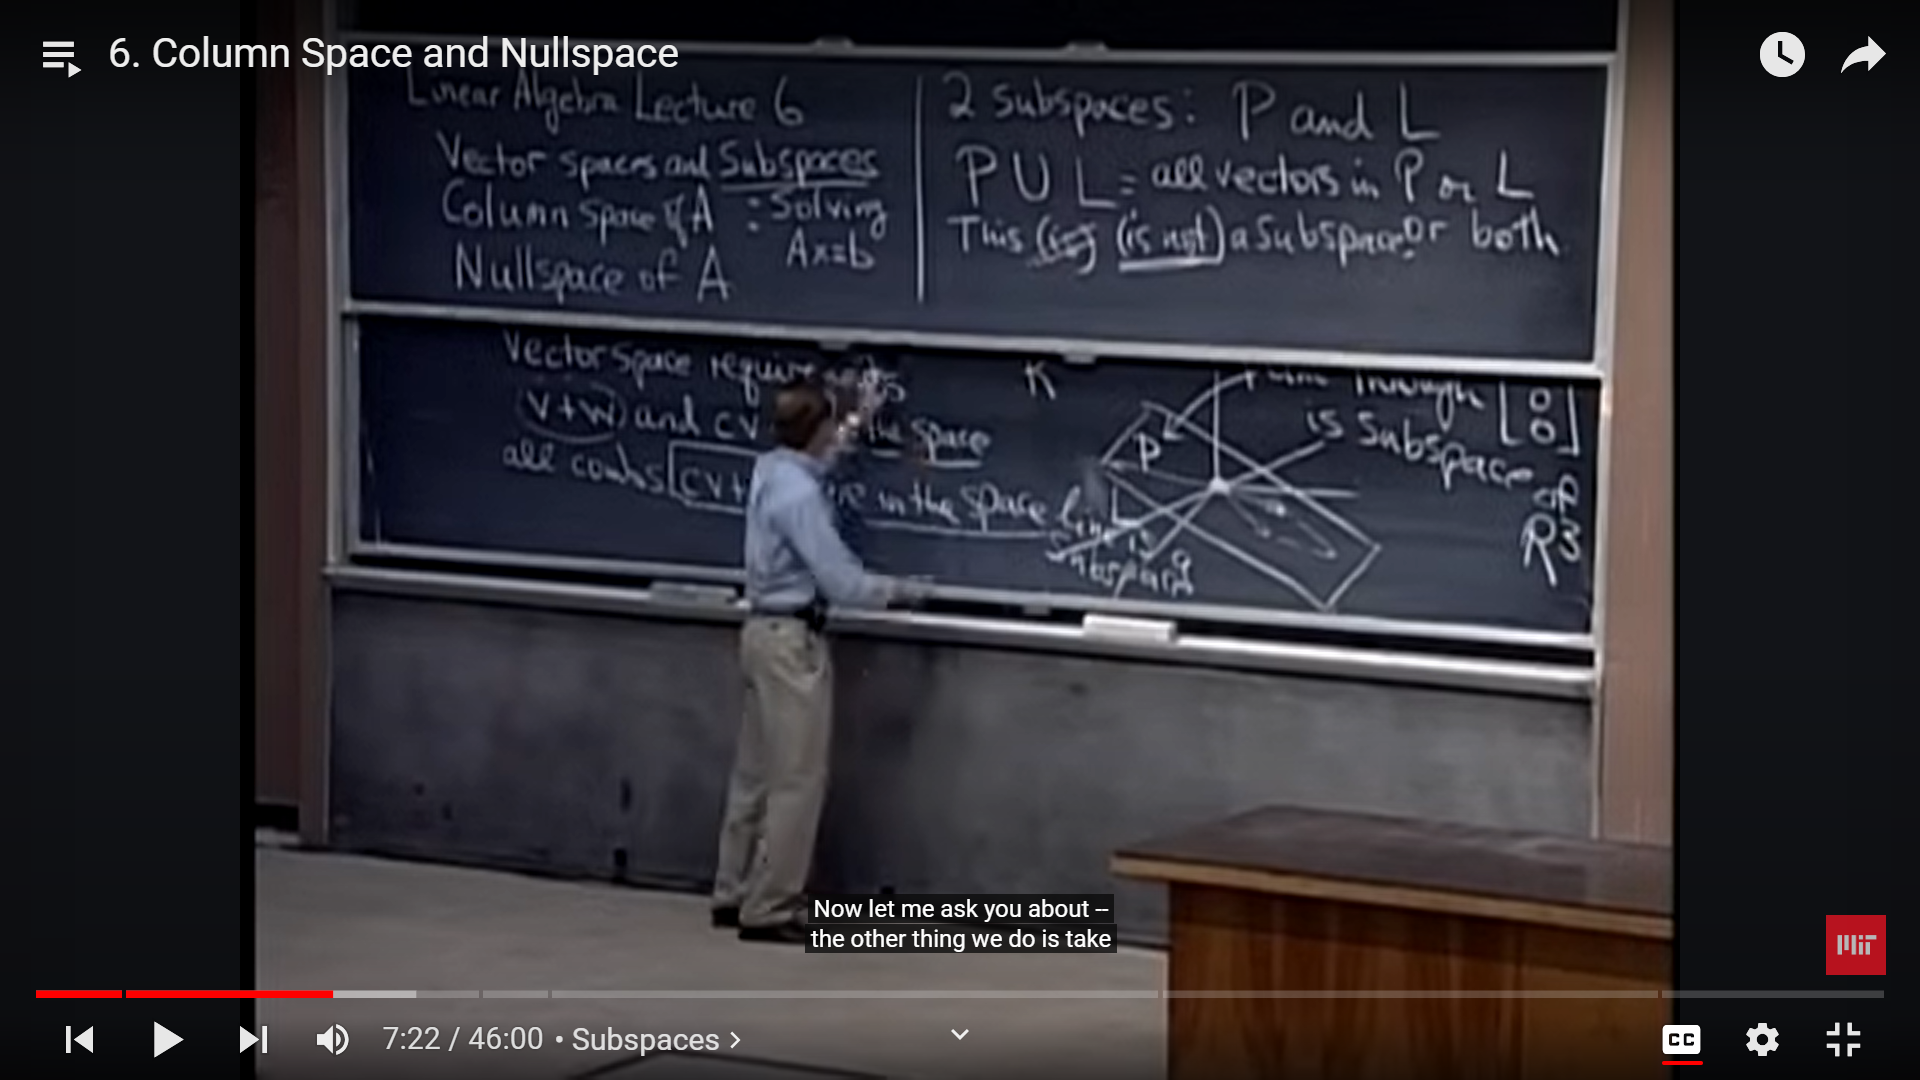 6. Column Space and Nullspace
Linear Algebra Lecture 6
Vector spaces and Subspaces
Column space of A : Solving
Ax=b
Nullspace of A
2 subspaces: P and L
P U L = all vectors in P or L
or both
This (is) (is not) a subspace.
Vector space requirements
v+w and cv the space
all combs cv+ are in the space
K
P
L
line is a
subspace
through [0 0]
is subspace
of
R3
Now let me ask you about --
the other thing we do is take
MIT
7:22 / 46:00 • Subspaces >
CC